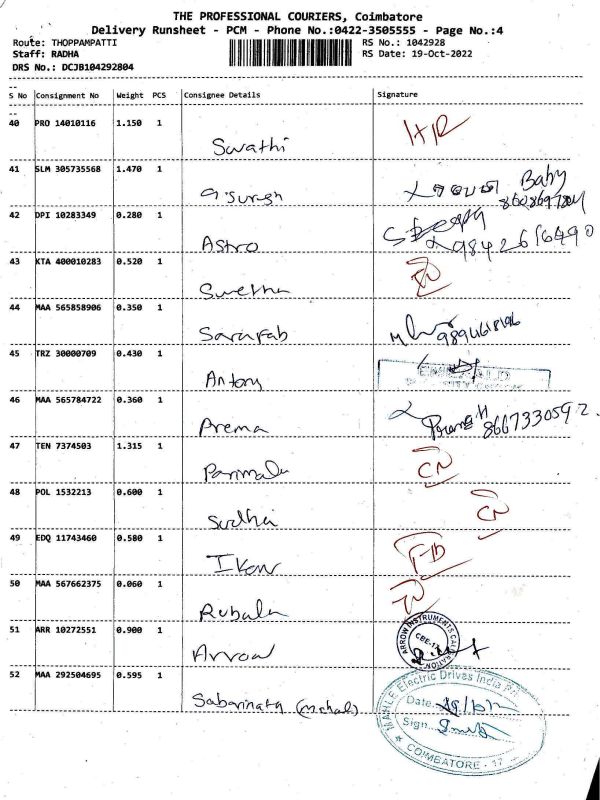 THE PROFESSIONAL COURIERS, Coimbatore
Delivery Runsheet - PCM - Phone No.:0422-3505555 - Page No.:4
Route: THOPPAMPATTI RS No.: 1042928
Staff: RADHA RS Date: 19-Oct-2022
DRS No.: DCJB104292804
S No Consignment No Weight PCS Consignee Details Signature
40 PRO 14010116 1.150 1 Swathi
41 SLM 305735568 1.470 1 G.Suresh Baby
42 DPI 10283349 0.280 1 Astro 9842616490
43 KTA 400010283 0.520 1 Swetha
44 MAA 565858906 0.350 1 Sarafab
45 TRZ 30000709 0.430 1 Antony
46 MAA 565784722 0.360 1 Prema 8667330592
47 TEN 7374503 1.315 1 Parimala CN
48 POL 1532213 0.600 1 Sudha CN
49 EDQ 11743460 0.580 1 Ikon
50 MAA 567662375 0.060 1 Rubala
51 ARR 10272551 0.900 1 Arrow ARROW INSTRUMENTS CALIBRATION
52 MAA 292504695 0.595 1 MAHLE Electric Drives India
Date
Sign
COIMBATORE - 17